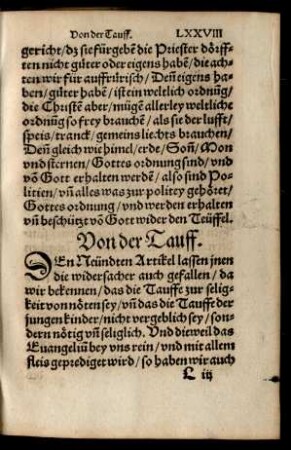 Von der Tauff. LXXVIII
gericht/dz sie fürgebẽ die Priester dörff-
ten nicht güter oder eigens habẽ/die ach-
ten wir für auffrürisch/Deñ eigens ha-
ben/güter haben/ist ein weltlich ordnũg/
die Christẽ aber/mügẽ allerley weltliche
ordnũg so frey brauchẽ/als sie der lufft/
speis/tranck/gemeins liechts brauchen/
Deñ gleich wie himel/erde/Soñ/Mon
vnd sternen/Gottes ordnung sind/vnd
võ Gott erhalten werdẽ/also sind Po-
litien/vñ alles was zur politey gehöret/
Gottes ordnung/vnd werden erhalten
vñ beschützt võ Gott wider den Teüffel.
Von der Tauff.
DEn Neündten Artikel lassen jnen
die widersacher auch gefallen/da
wir bekennen/das die Tauffe zur selig-
keit von nöten sey/vñ das die Tauffe der
jungen kinder/nicht vergeblich sey/son-
dern nötig vñ seliglich. Vnd dieweil das
Euangeliũ bey vns rein/vnd mit allem
fleis geprediget wird/so haben wir auch
L iij